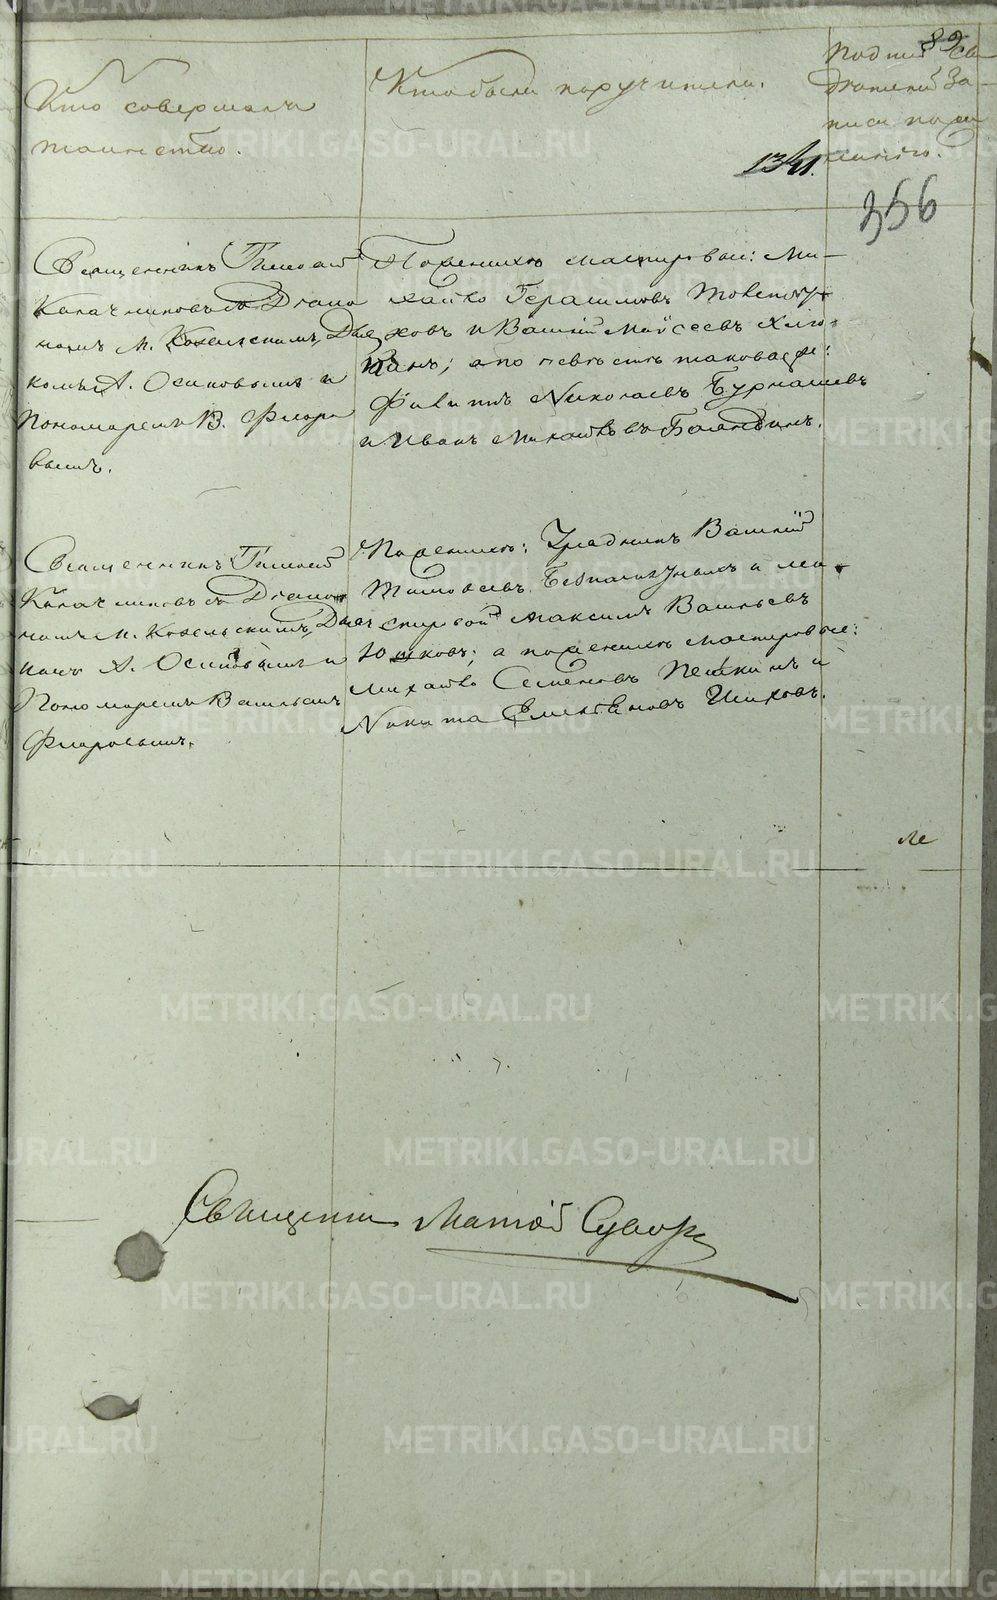 Кто совершалъ
таинство.
Кто были поручители.
Подпись сви
дѣтелей за-
писи по же
ланію.
89
1341.
356
Священникъ Тимофей
Калачниковъ съ Діако
номъ М. Козельскимъ, Дья
комъ А. Осиповымъ и
Пономаремъ В. Флоро
вымъ.
По женихѣ мастеровые: Ми-
хайло Герасимовъ
ховъ и Василій Моисеевъ
а по невѣстѣ таковые:
Филиппъ Николаевъ Бурмашевъ
и Иванъ Михайловъ Баландинъ.
Священникъ Тимофей
Калачниковъ съ Діако
номъ М. Козельскимъ, Дьяч
комъ А. Осиповымъ и
Пономаремъ Василіемъ
Флоровымъ.
По женихѣ: Урядникъ Василій
Тимофеевъ и мас
теровой Максимъ Васильевъ
Юшковъ; а по женихѣ мастеровые:
Михайло Семеновъ Пешкинъ и
Никита Емельяновъ Шиховъ.
Священникъ Матфей Сувор
METRIKI.GASO-URAL.RU